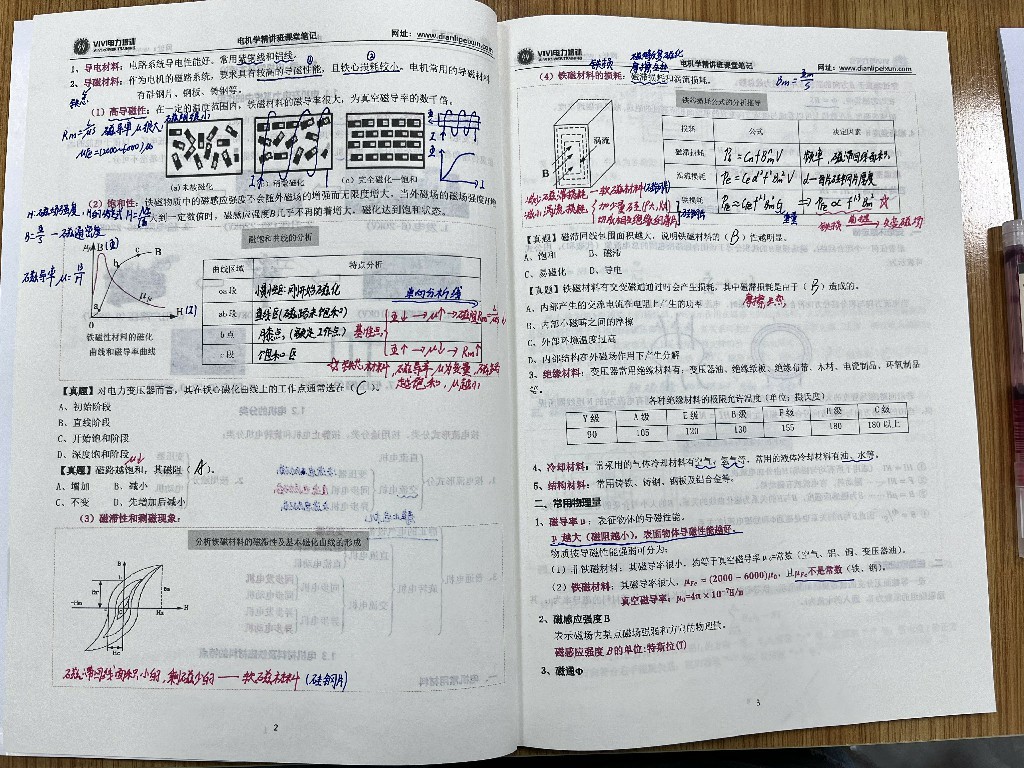 VIVI电力培训
电机学精讲班课堂笔记
网址：www.dianlipeixun.com
1、导电材料：电路系统导电性能好。常用紫铜线和铝线。
2、导磁材料：作为电机的磁路系统，要求具有较高的导磁性能，且铁心损耗较小。电机常用的导磁材料
有硅钢片、钢板、铸钢等。
(1) 高导磁性：在一定的温度范围内，铁磁材料的磁导率很大，为真空磁导率的数千倍。
磁导率μ很大
(a)未被磁化
(c) 完全磁化—饱和
(2) 饱和性：铁磁物质中的磁感应强度不会随外磁场的增强而无限度增大，当外磁场的磁场强度H增
大到一定数值时，磁感应强度B几乎不再随着增大，磁化达到饱和状态。
H：磁场强度
B=Φ/S—磁通密度
磁导率 μ=B/H
磁饱和曲线的分析
曲线区域 特点分析
oa段 惯性区：刚开始磁化
ab段 直线区(磁场未饱和)
b点 膝点：(额定工作点) 基准点
c段 饱和区
B H a b c
铁磁性材料的磁化
曲线和磁导率曲线
【真题】对电力变压器而言，其在铁心磁化曲线上的工作点通常选在（C）。
A、初始阶段
B、直线阶段
C、开始饱和阶段
D、深度饱和阶段
μ↓
【真题】磁路越饱和，其磁阻（A）。
A、增加 B、减小
C、不变 D、先增加后减小
(3) 磁滞性和剩磁现象：
分析铁磁材料的磁滞性及基本磁化曲线的形成
B
Br
Bm
-Hm
Hc
Hm
H
磁滞回线面积小的，剩磁少的——软磁材料(硅钢片)
2
VIVI电力培训
电机学精讲班课堂笔记
网址：www.dianlipeixun.com
(4) 铁磁材料的损耗：磁滞损耗和涡流损耗。
涡流
B
铁耗损耗公式的分析推导
损耗 公式 决定因素
磁滞损耗 频率，磁滞回线面积
涡流损耗 d—硅钢片厚度
铁耗
减小磁滞损耗—软磁材料(硅钢片)
减小涡流损耗
【真题】磁滞回线包围面积越大，说明铁磁材料的（B）性越明显。
A、饱和 B、磁滞
C、易磁化 D、导电
【真题】铁磁材料有交变磁通通过时会产生损耗，其中磁滞损耗是由于（B）造成的。
摩擦生热
A、内部产生的交流电流在电阻上产生的功率
B、内部小磁畴之间的摩擦
C、外部环境温度过高
D、内部结构在外磁场作用下产生分解
3、绝缘材料：变压器常用绝缘材料有：变压器油、绝缘纸板、绝缘布带、木材、电瓷制品、环氧制品
等。
各种绝缘材料的极限允许温度（单位：摄氏度）
Y级 A级 E级 B级 F级 H级 C级
90 105 120 130 155 180 180以上
4、冷却材料：常采用的气体冷却材料有空气、氢气等，常用的液体冷却材料有油、水等。
5、结构材料：常用铸铁、铸钢、钢板及铝合金等。
二、常用物理量
1、磁导率μ：表征物体的导磁性能。
μ越大（磁阻越小），表面物体导磁性能越好。
物质按导磁性能强弱可分为：
(1) 非铁磁材料：其磁导率很小，约等于真空磁导率μ₀=常数（空气、铝、铜、变压器油）。
(2) 铁磁材料：其磁导率很大，μFe≈(2000-6000)μ₀，且μFe不是常数（铁、钢）。
真空磁导率：μ₀=4π×10⁻⁷H/m
2、磁感应强度B
表示磁场内某点磁场强弱和方向的物理量。
磁感应强度B的单位：特斯拉(T)
3、磁通Φ
3